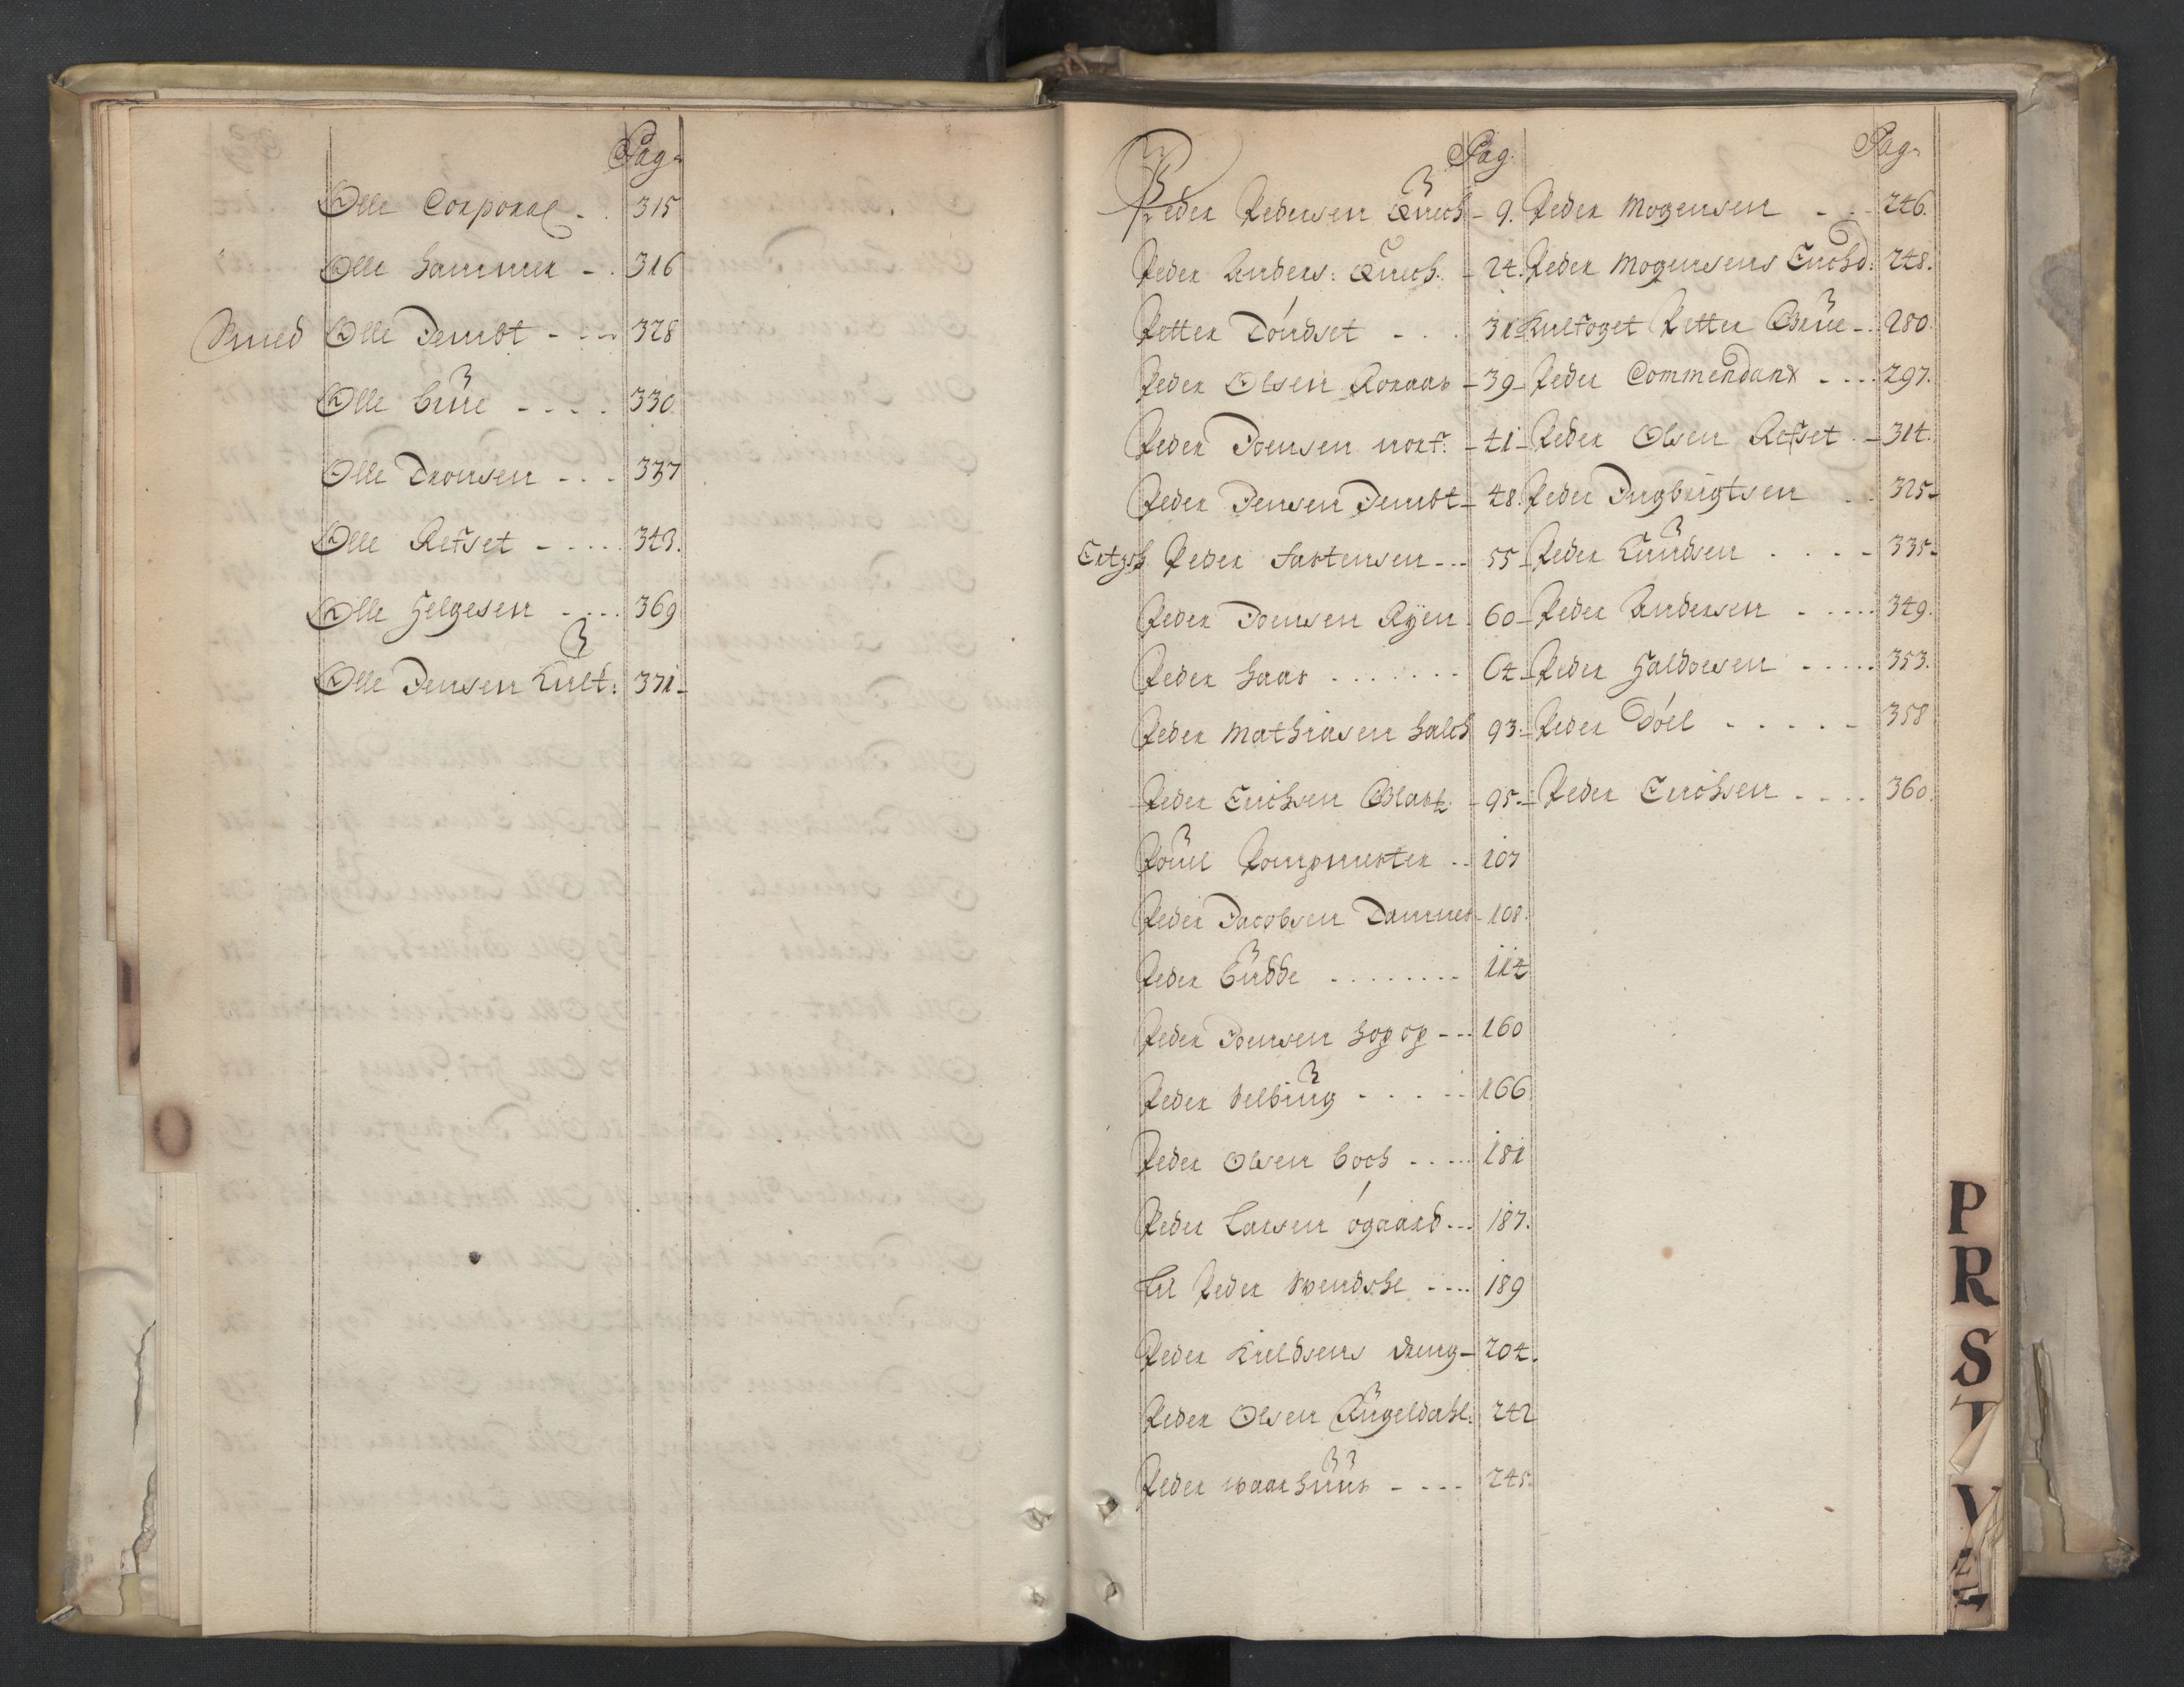 Pag.
Olle Corporal - . 315
Olle Hammer - . 316
Smed Olle Jembt - - - 328
Olle Brüe - - - . 330
Olle Tronsen - . - 337
Olle Refset - . . . . 343.
Olle Helgesen - . . . 369
Olle Jensen Kult: 371-
O
Pag.
Peder Pedersen Qürch - 9.
Peder Anders: Querch. - 24.
Petter Tóndset - . . 31
Peder Olsen Roraas - 39-
Peder Joensen norf: - 41-
Peder Jensen Jembt - 48.
Peder Fastensen - - - 55-
Peder Joensen Ryen 60-
Peder Haas . . . . . . . 64-
Peder Mathiasen Halch 93.-
Peder Erichsen - 95.-
Poüel - . 107
Peder Jacobsen - 108.
Peder Büdde - . . . . . . . 114
Peder Joensen hop op - - - 160
Peder Selbüug - . . . - 166
Peder Olsen Coch - . . . . 181
Peder Larsen ógaard - - - 187.
Lil Peder - . . . 189
Peder Kieldsens dreng - 204.
Peder Olsen Rügeldahl: 242
Peder waarhüüs - . - - 245.
Pag.
Peder Mogensen - . - 246.
Peder Mogensens 248.
Kulfoget Petter Brüe - . 280.
Peder Commendant - . . . 297.
Peder Olsen Refset . - 314.
Peder Ingbrigtsen - . 325-
Peder Knüdsen . . . - 335-
Peder Andersen - . . . . 349.
Peder Haldoesen - . . . . 353.
Peder Dóel - . . . . - 358
Peder Erichsen - . . . 360.
P
R
S
T
V